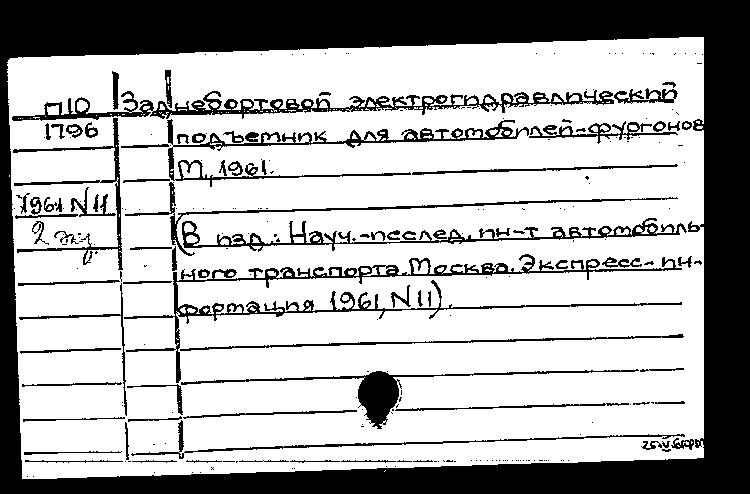 П10 Заднебортовой электрогидравлический
1796 подъемник для автомобилей-фургонов
М., 1961.
1961 N 11
2 экз
(В изд.: Науч.-исслед. ин-т автомобиль-
ного транспорта. Москва. Экспресс-ин-
формация 1961, N 11).